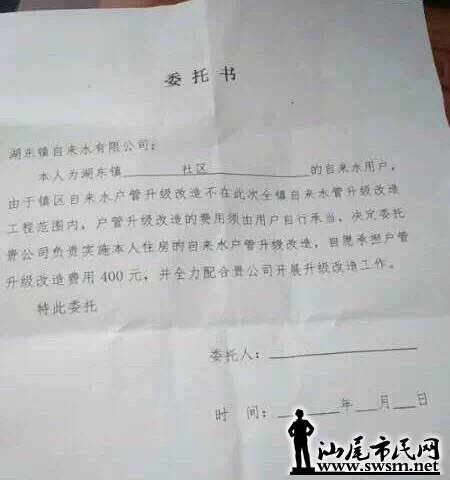 委托书
湖东镇自来水有限公司：
本人为湖东镇____________社区____________的自来水用户，
由于镇区自来水户管升级改造不在此次全镇自来水管升级改造
工程范围内，户管升级改造的费用须由用户自行承当，决定委托
贵公司负责实施本人住房的自来水户管升级改造，自愿承担户管
升级改造费用400元，并全力配合贵公司开展升级改造工作。
特此委托
委托人：____________
时 间：______年___月___日
汕尾市民网
www.swsm.net